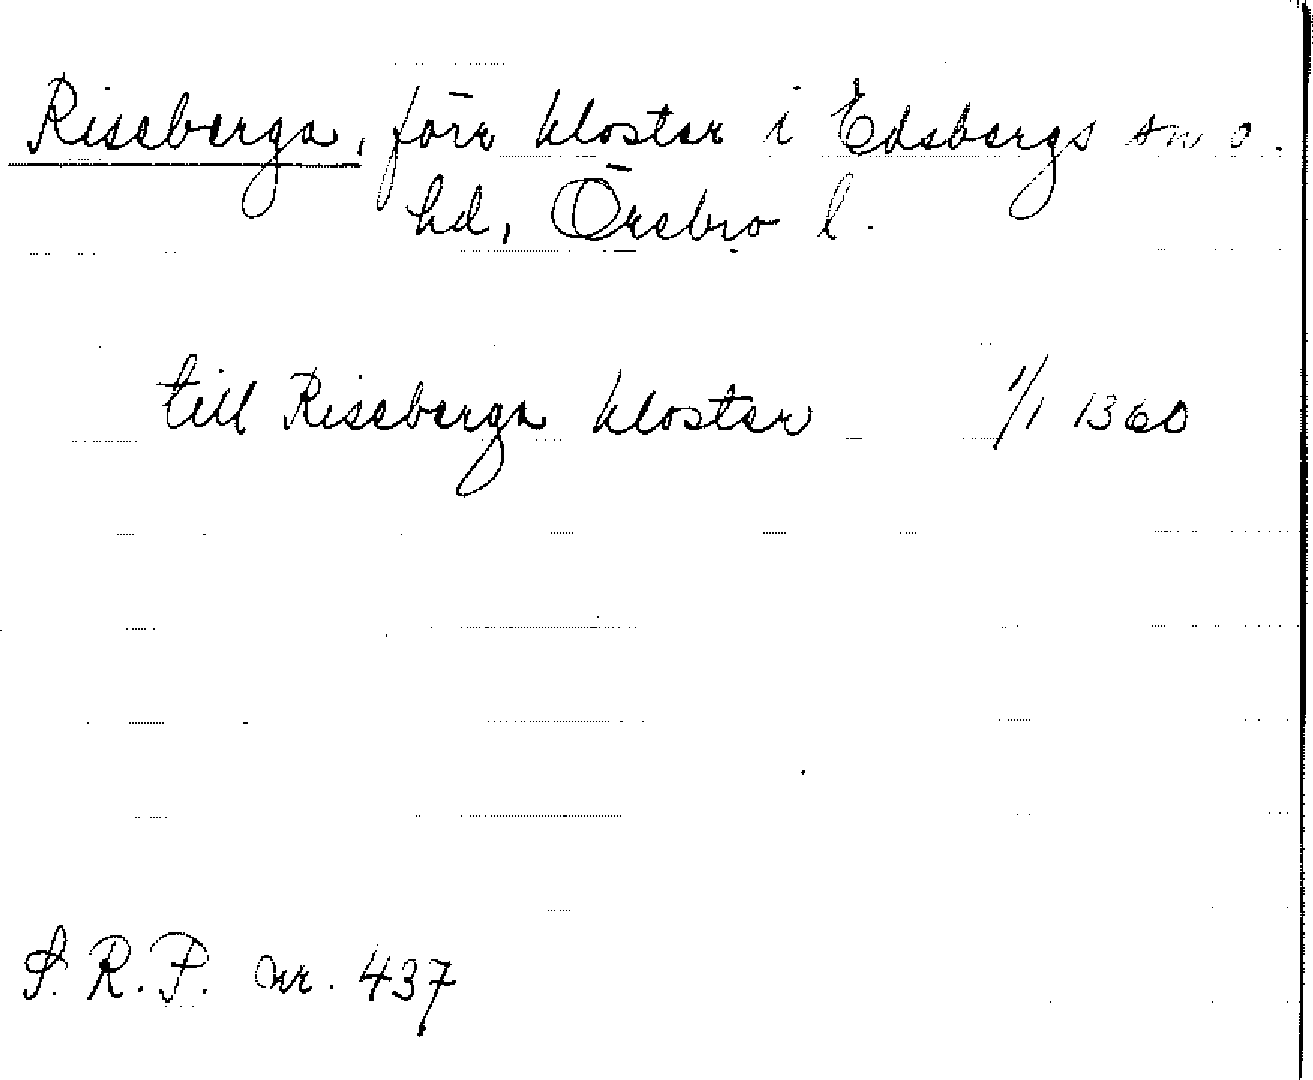 Riseberga, förr kloster i Edsbergs sn o.
hd, Örebro l.
till Riseberga kloster 1/1 1360
S.R.P. nr. 437